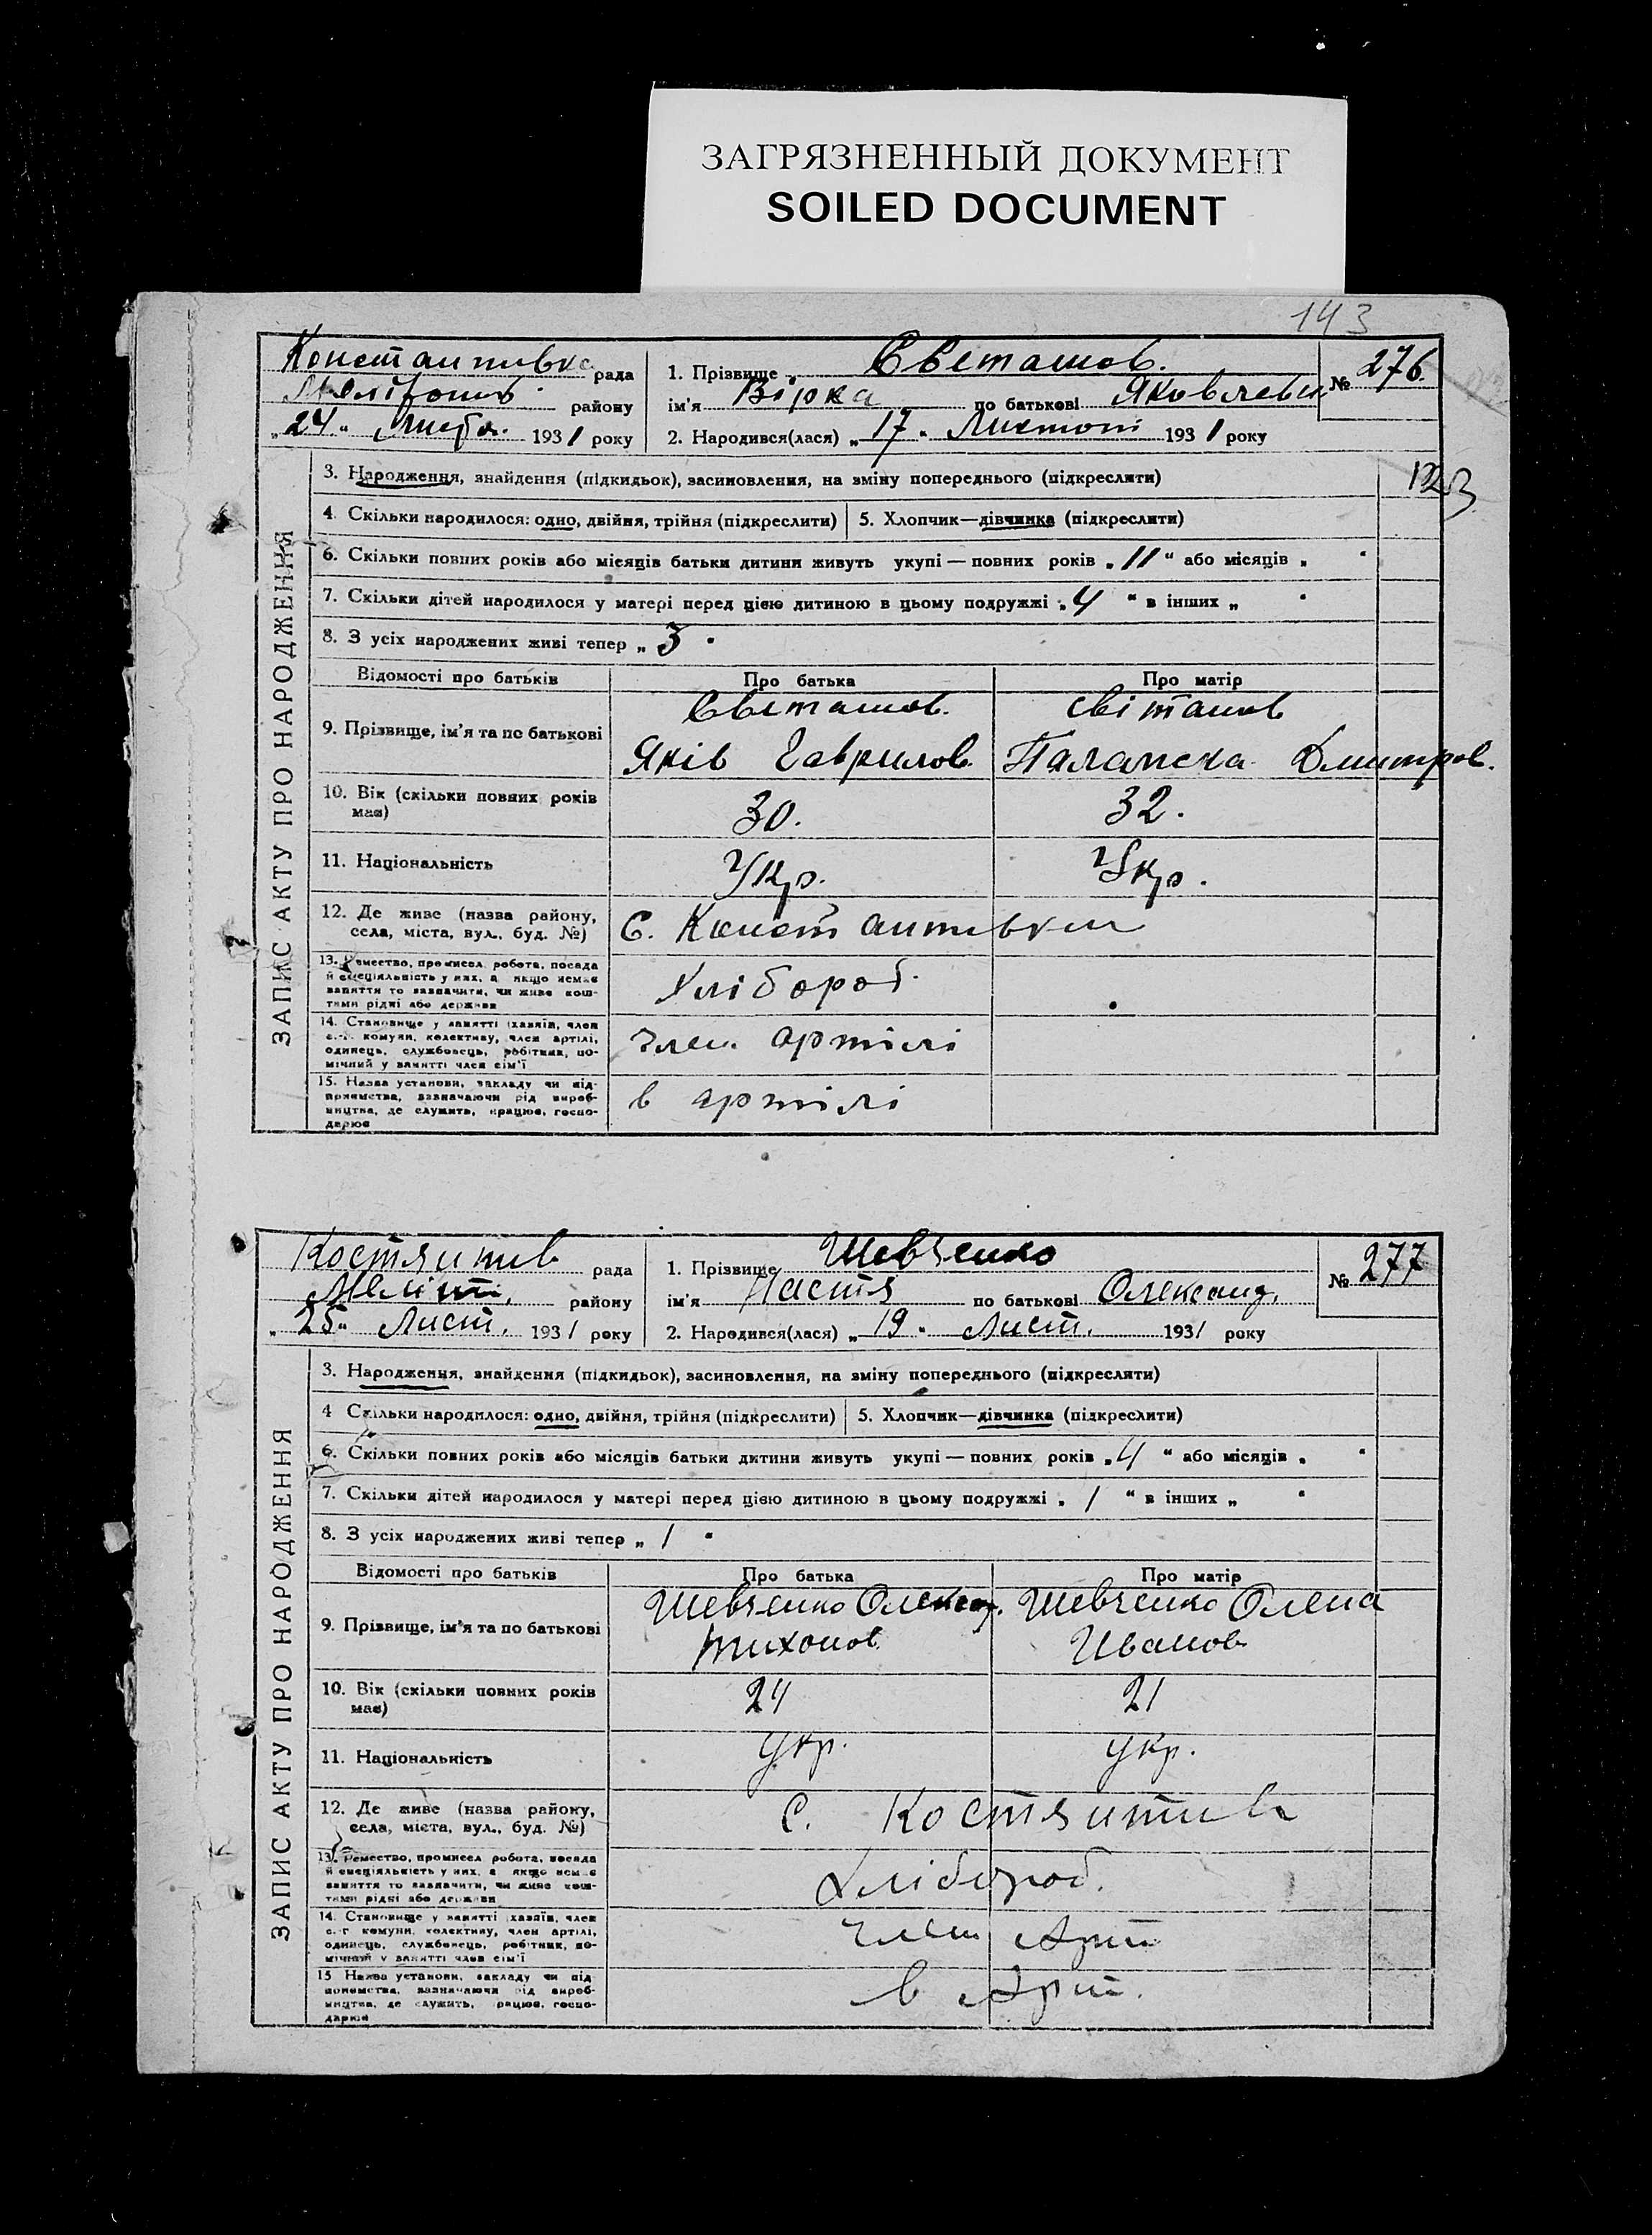 ЗАГРЯЗНЕННЫЙ ДОКУМЕНТ
SOILED DOCUMENT
143
ЗАПИС АКТУ ПРО НАРОДЖЕННЯ
Константивка рада
району
„24“ 1931 року
1. Прізвище Светашов.
ім'я Вірка по батькові Яковлевн
№ 276.
2. Народився(лася) „17“ Листоп 1931 року
3. Народження, знайдення (підкидьок), засиновлення, на зміну попереднього (підкреслити)
123
4. Скільки народилося: одно, двійня, трійня (підкреслити) 5. Хлопчик—дівчинка (підкреслити)
6. Скільки повних років або місяців батьки дитини живуть укупі — повних років „11“ або місяців „ “
7. Скільки дітей народилося у матері перед цією дитиною в цьому подружжі „4“ в інших „ “
8. З усіх народжених живі тепер „3“
Відомості про батьків Про батька Про матір
9. Прізвище, ім'я та по батькові
Светашов. Світашов
Яків Гаврилов Палажка Дмитров.
10. Вік (скільки повних років має) 30. 32.
11. Національність Укр. Укр.
12. Де живе (назва району, села, міста, вул., буд. №) С. Константивки
13. Ремество, промисел, робота, посада й спеціяльність у них, а якщо немає заняття то зазначити, чи живе коштами рідні або держави Хлібороб.
14. Становище у занятті (хазяїн, член с.-г. комуни, колективу, член артілі, одинець, службовець, робітник, помічний у занятті член сім'ї член. артілі
15. Назва установи, закладу чи підприємства, зазначаючи рід виробництва, де служить, працює, господарює в артілі
ЗАПИС АКТУ ПРО НАРОДЖЕННЯ
Костянтив рада
Меліт. району
„25“ Лист. 1931 року
1. Прізвище Шевченко
ім'я Настя по батькові Олександ.
№ 277
2. Народився(лася) „19“ Лист. 1931 року
3. Народження, знайдення (підкидьок), засиновлення, на зміну попереднього (підкреслити)
4 Скільки народилося: одно, двійня, трійня (підкреслити) 5. Хлопчик—дівчинка (підкреслити)
6. Скільки повних років або місяців батьки дитини живуть укупі — повних років „4“ або місяців „ “
7. Скільки дітей народилося у матері перед цією дитиною в цьому подружжі „1“ в інших „ “
8. З усіх народжених живі тепер „1“
Відомості про батьків Про батька Про матір
9. Прізвище, ім'я та по батькові
Шевченко Олександ. Шевченко Олена
Тихонов. Иванов
10. Вік (скільки повних років має) 24 21
11. Національність укр. укр.
12. Де живе (назва району, села, міста, вул., буд. №) С. Костянтив
13. Ремество, промисел, робота, посада й спеціяльність у них, а якщо немає заняття то зазначити, чи живе коштами рідні або держави Хлібороб.
14. Становище у занятті (хазяїн, член с.-г комуни, колективу, член артілі, одинець, службовець, робітник, помічний у занятті член сім'ї член Арт
15 Назва установи, закладу чи підприємства, зазначаючи рід виробництва, де служить, працює, господарює в Арт.